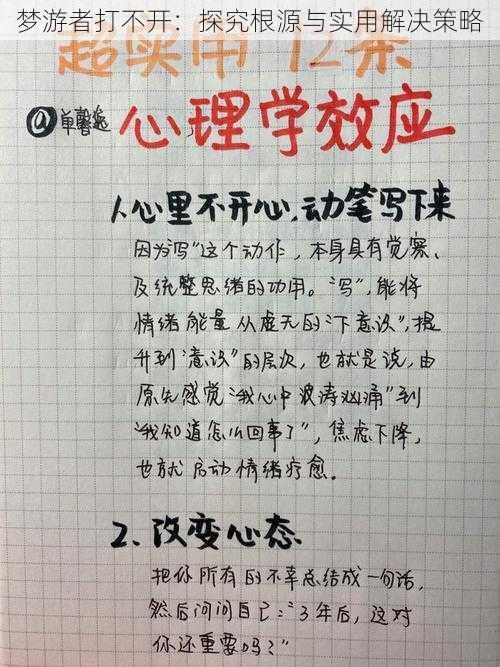 梦游者打不开：探究根源与实用解决策略
超实用 12条
@单馨逸
心理学效应
1、心里不开心，动笔写下来
因为“写”这个动作，本身具有觉察、
及统整思绪的功用。“写”，能将
情绪能量从虚无的“下意识”，提
升到“意识”的层次，也就是说，由
原先感觉“我心中波涛汹涌”到
“我知道怎么回事了”，焦虑下降，
也就启动情绪疗愈。
2、改变心态
把你所有的不幸总结成一句话，
然后问问自己：“3年后，这对
你还重要吗？”